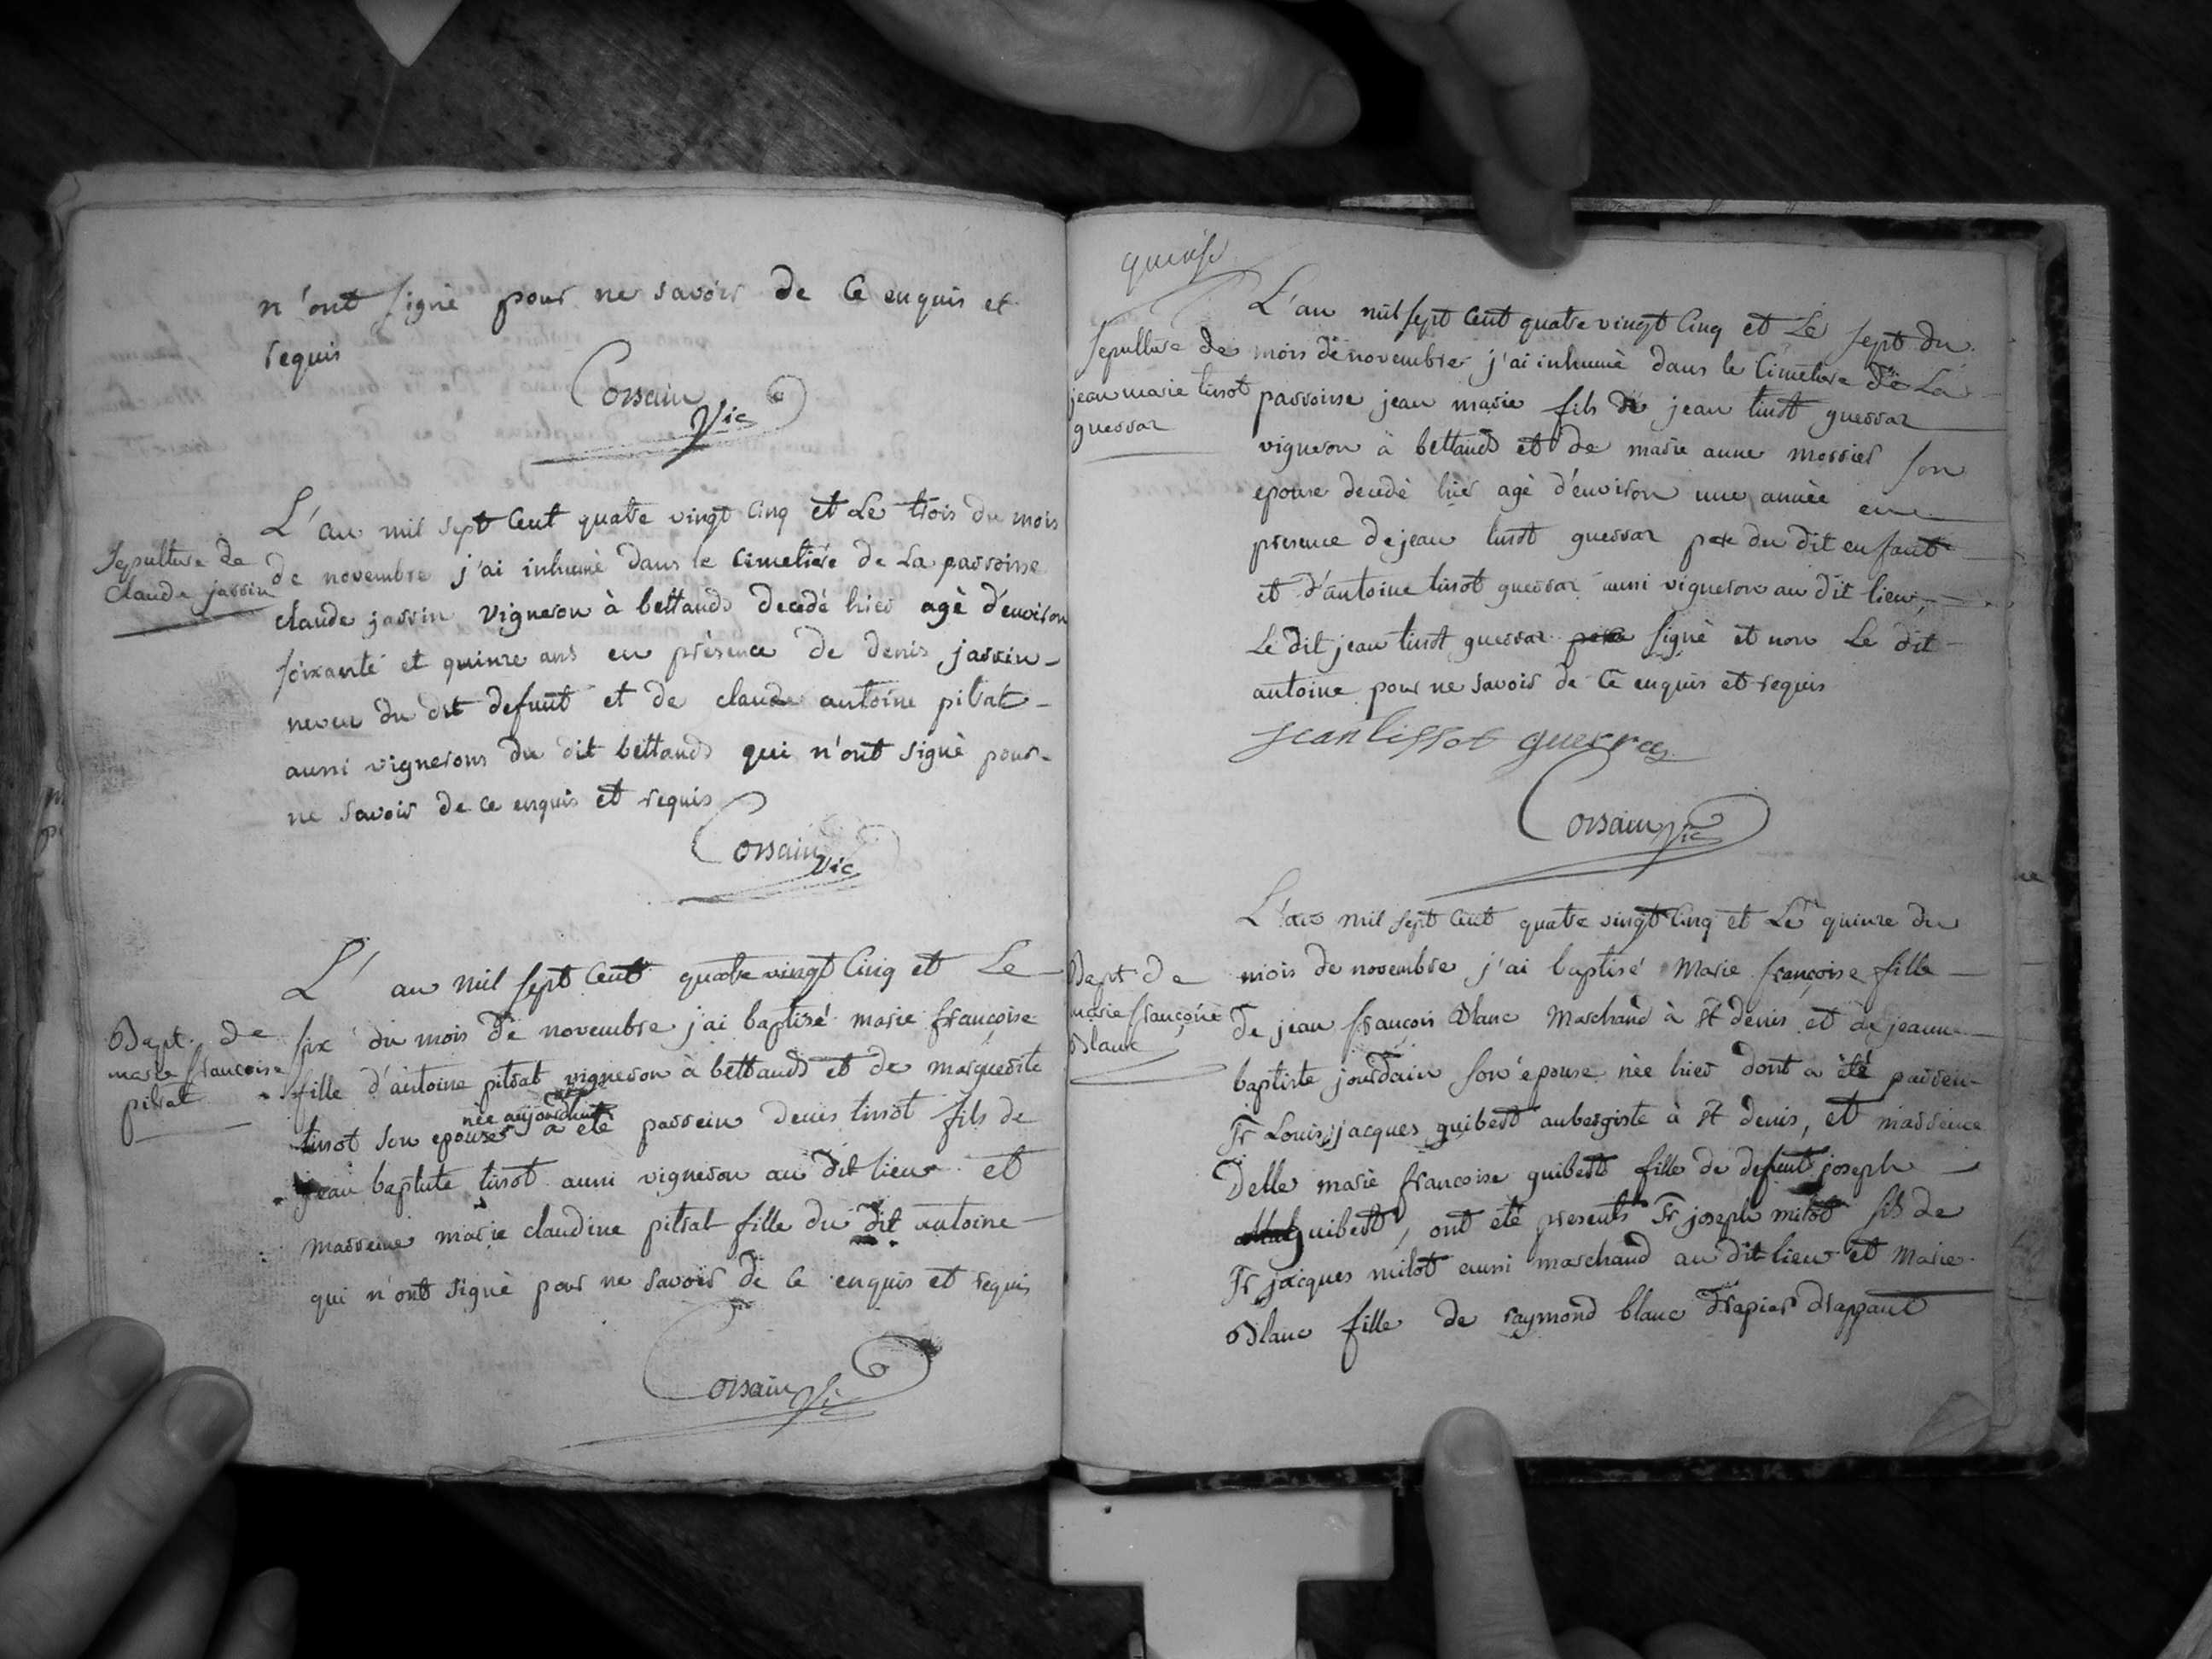 n'ont signé pour ne savoir de ce enquis et
requis
Corsain
Vic
L'an mil sept cent quatre vingt cinq et Le trois du mois
Sepulture de
Claude jarrin
de novembre j'ai inhumé dans le cimetiere de La parroisse
claude jarrin vigneron à bettands decedé hier agè d'environ
soixante et quinze ans en présence de denis jarrin
neveu du dit defunt et de claude antoine pitrat
aussi vignerons du dit bettands qui n'ont signé pour
ne savoir de ce enquis et requis
Corsain
Vic
L'an mil sept cent quatre vingt cinq et Le
Bapt. de
marie francoise
pitrat
six du mois de novembre j'ai baptisé marie francoise
fille d'antoine pitrat vigneron à bettands et de marguerite
née aujourdhuit
tissot son epouse a eté parrein denis tissot fils de
jean baptiste tissot aussi vigneron au dit lieu et
marreine marie claudine pitrat fille du dit antoine
qui n'ont signé pour ne savoir de ce enquis et requis
Corsain Vic
quinse
L'an mil sept cent quatre vingt cinq et Le sept du
Sepulture de
jean marie tissot
guerrar
mois de novembre j'ai inhumé dans le cimetiere de La
parroisse jean marie fils de jean tissot guerrar
vigneron à bettands et de marie anne mersier son
epouse decedé hier agé d'environ une année en
presence de jean tissot guerrar pere du dit enfant
et d'antoine tissot guerrar aussi vigneron au dit lieu,
Le dit jean tissot guerrar signé et non Le dit
antoine pour ne savoir de ce enquis et requis
jean tissot guerra
Corsain Vic
L'an mil sept cent quatre vingt cinq et Le quinze du
Bapt de
marie françoise
Blanc
mois de novembre j'ai baptisé Marie françoise fille
De jean françois Blanc Marchand à St denis et de jeanne
baptiste jourdain son epouse née hier dont a été parrein
Sr Louis jacques guibert aubergiste à St denis, et marreine
Delle marie francoise guibert fille de defunt joseph
guibert, ont été presents Sr joseph milot fils de
Sr jacques milot aussi marchand au dit lieu et Marie
Blanc fille de raymond blanc Drapier drappant